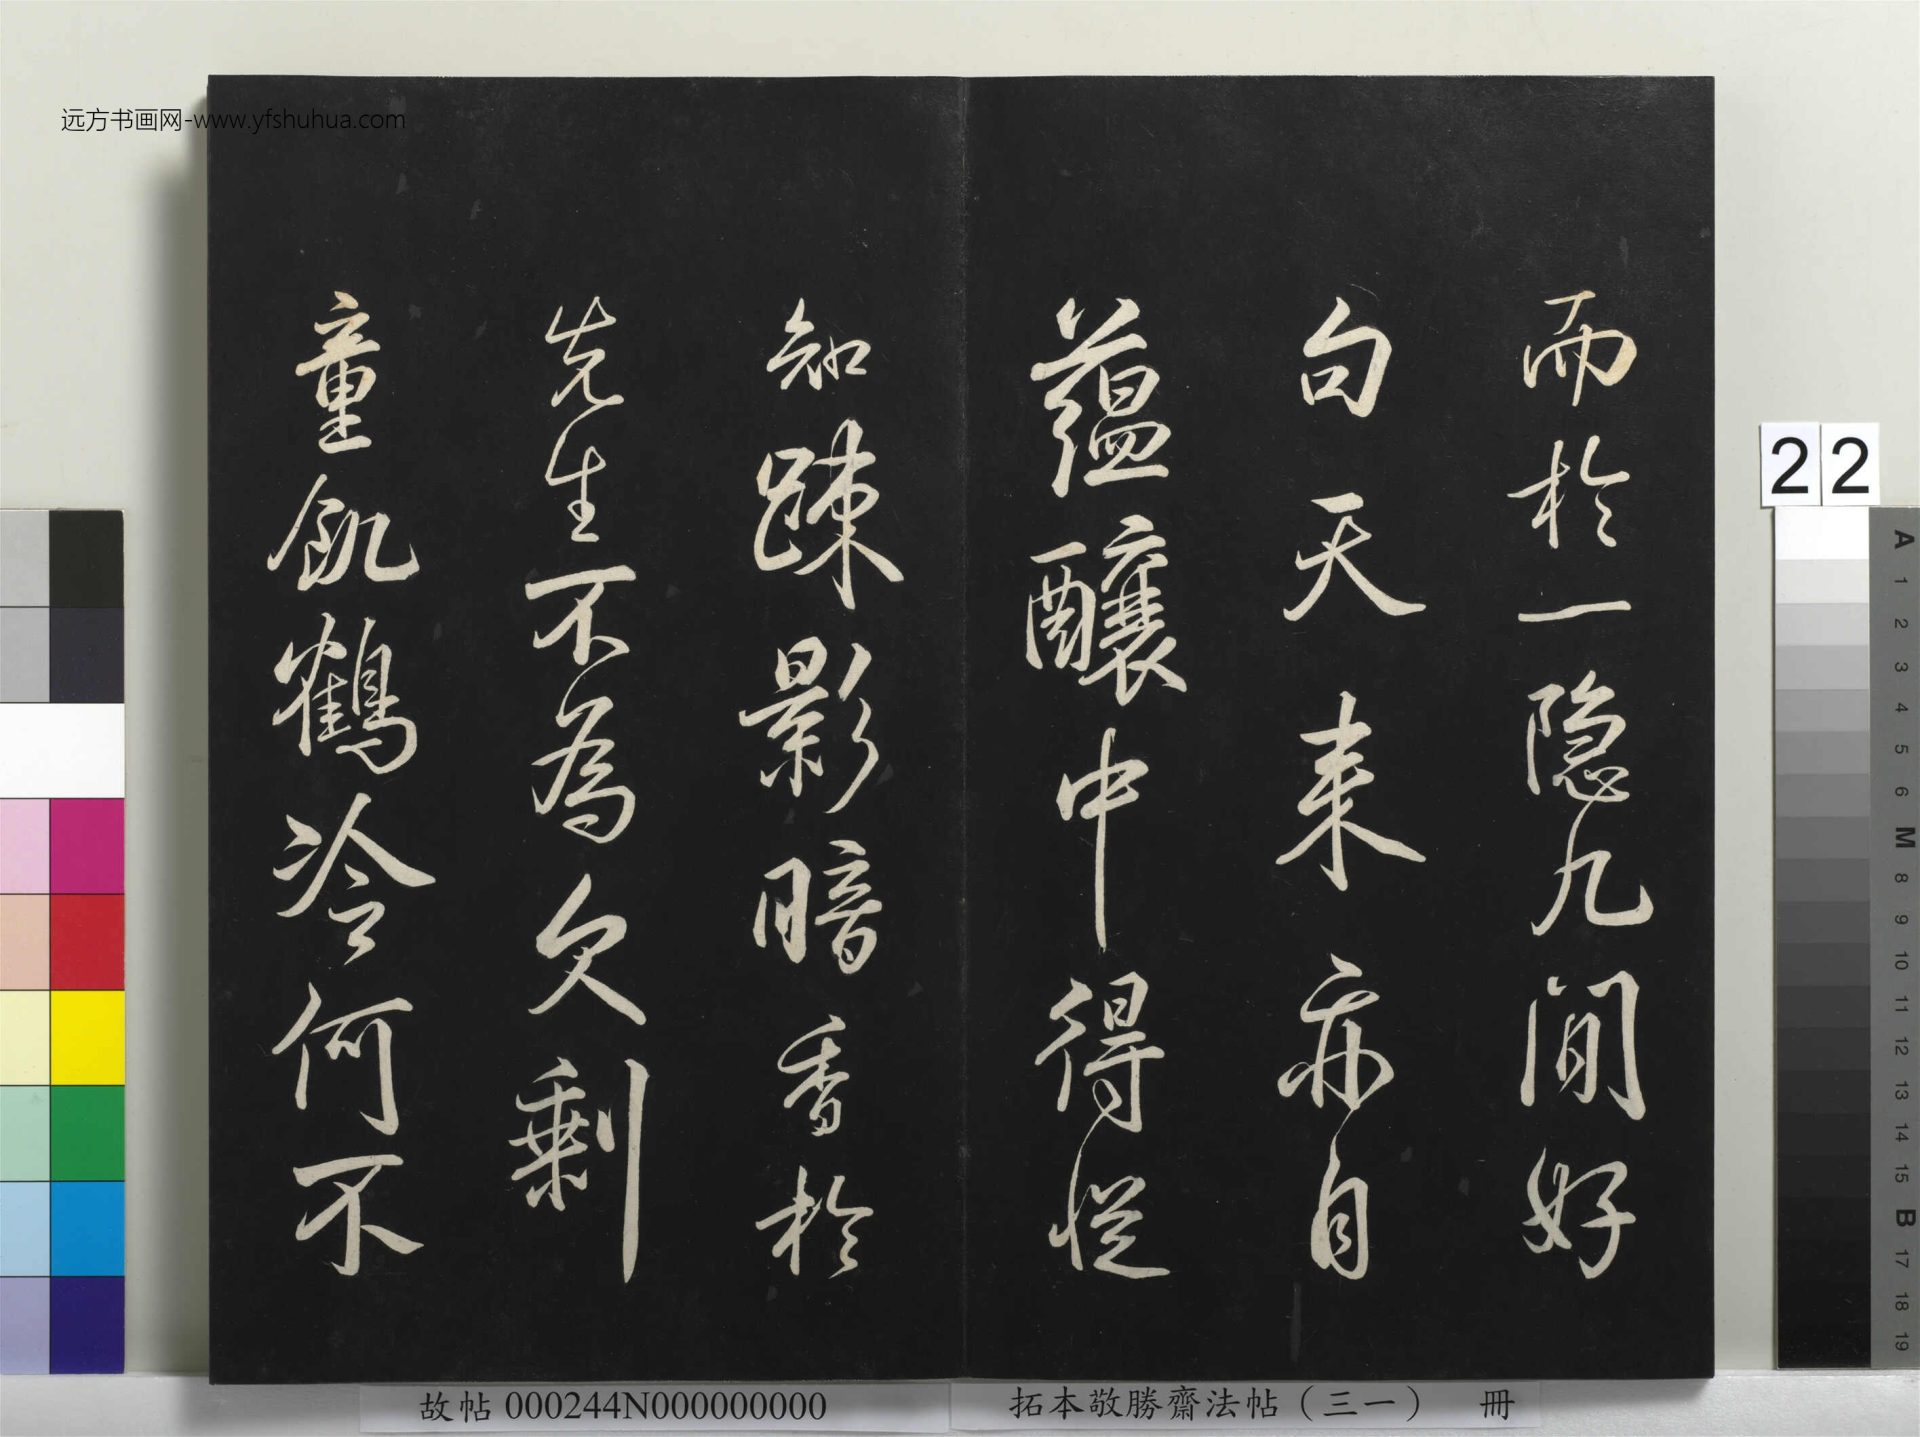 远方书画网-www.yfshuhua.com
而於一隐九閒好
句天来亦自
蕴釀中得從
知踈影暗香於
先生不為欠剩
童飢鶴冷何不
22
A 1 2 3 4 5 6 M 8 9 10 11 12 13 14 15 B 17 18 19
故帖 000244N000000000
拓本敬勝齋法帖（三一） 冊